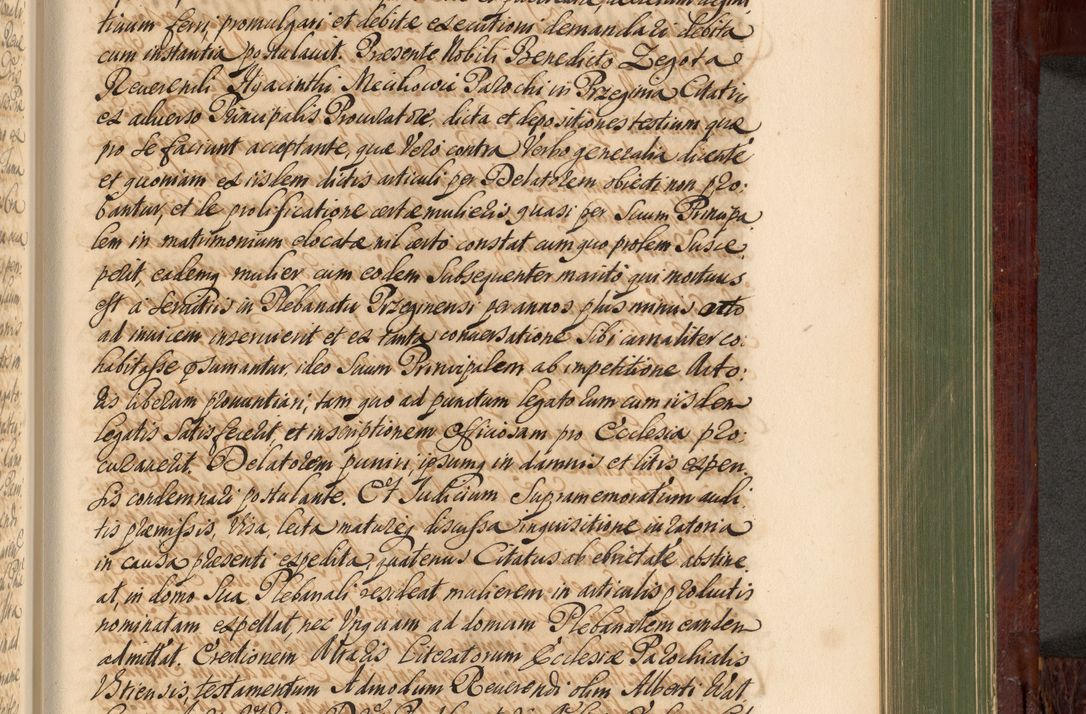 tivum ferri, promulgari et debitæ executioni demandari debita
cum instantia postulavit. Præsente Nobili Benedicto Zegota
Reverendi Hyacinthi Meciłowicz Parochi in Przeginia Citati
ex adverso Principalis Procuratore, dicta et depositiones testium quæ
pro se faciunt acceptante, quæ vero contra verbo generalia dicente
et quoniam ex iislem dictis articuli per Delatorem obiecti non pro:
bantur, et de prolificatione certæ mulieris quasi per Suum Principa
lem in matrimonium elocatæ nil certo constat cum quo prolem susce
perit, eademq mulier cum eodem subsequenter marito qui mortuus
est à servitiis in Plebanatu Przeginensi per annos plus minus octo
ad invicem inservierit et ex tanta conversatione sibi carnaliter co:
habitasse præsumantur, ideo Suum Principalem ab impetitione Acto:
ris liberum pronuntiari, tum quo ad punctum legatorum cum iisdem
legatis satisfecerit, et inscriptionem efficiosam pro Ecclesia pro:
curaverit. Delatorem puniri, ipsumq in damnis et litis expen
sis condemnari postulante. Et Iudicium supramemoratum audi
tis præmissis, visa, lecta matureq discussa inquisitione iuratoria
in causa præsenti expedita, quatenus Citatus ab ebrietate abstine
at, in domo sua Plebanali resideat mulierem in articulis productis
nominatam expellat, nec unquam ad domum Plebanalem eandem
admittat. Erectionem Altaris Literatorum Ecclesiæ Parochialis
testamentum Admodum Reverendi olim Alberti